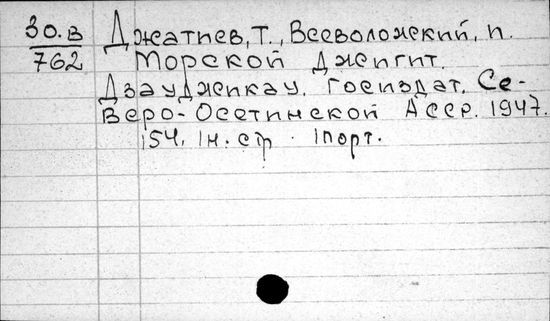 30.В Джатиев, Т., Всеволожский, И.
762 Морской Джигит.
Дзауджикау. Госиздат. Се-
веро-Осетинской АССР. 1947.
154, 1н. ср. 1 порт.